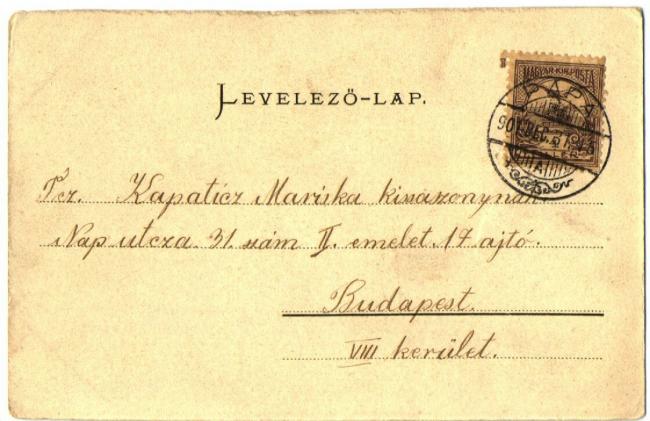 LEVELEZŐ-LAP.
MAGYAR·KIR·POSTA
PÁPA
Tcz. Kapaticz Mariska kisaszonynak.
Nap utcza 31. szám II. emelet. 17 ajtó.
Budapest.
VIII kerület.